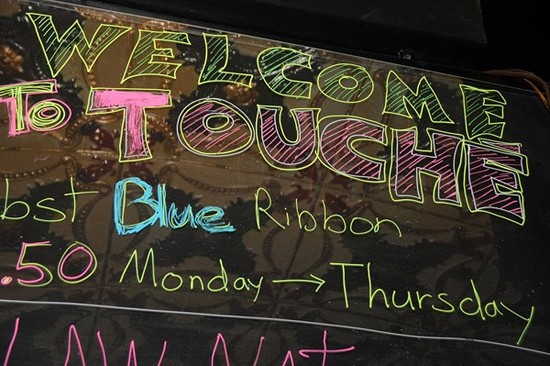 WELCOME
TO TOUCHE
bst Blue Ribbon
.50 Monday → Thursday